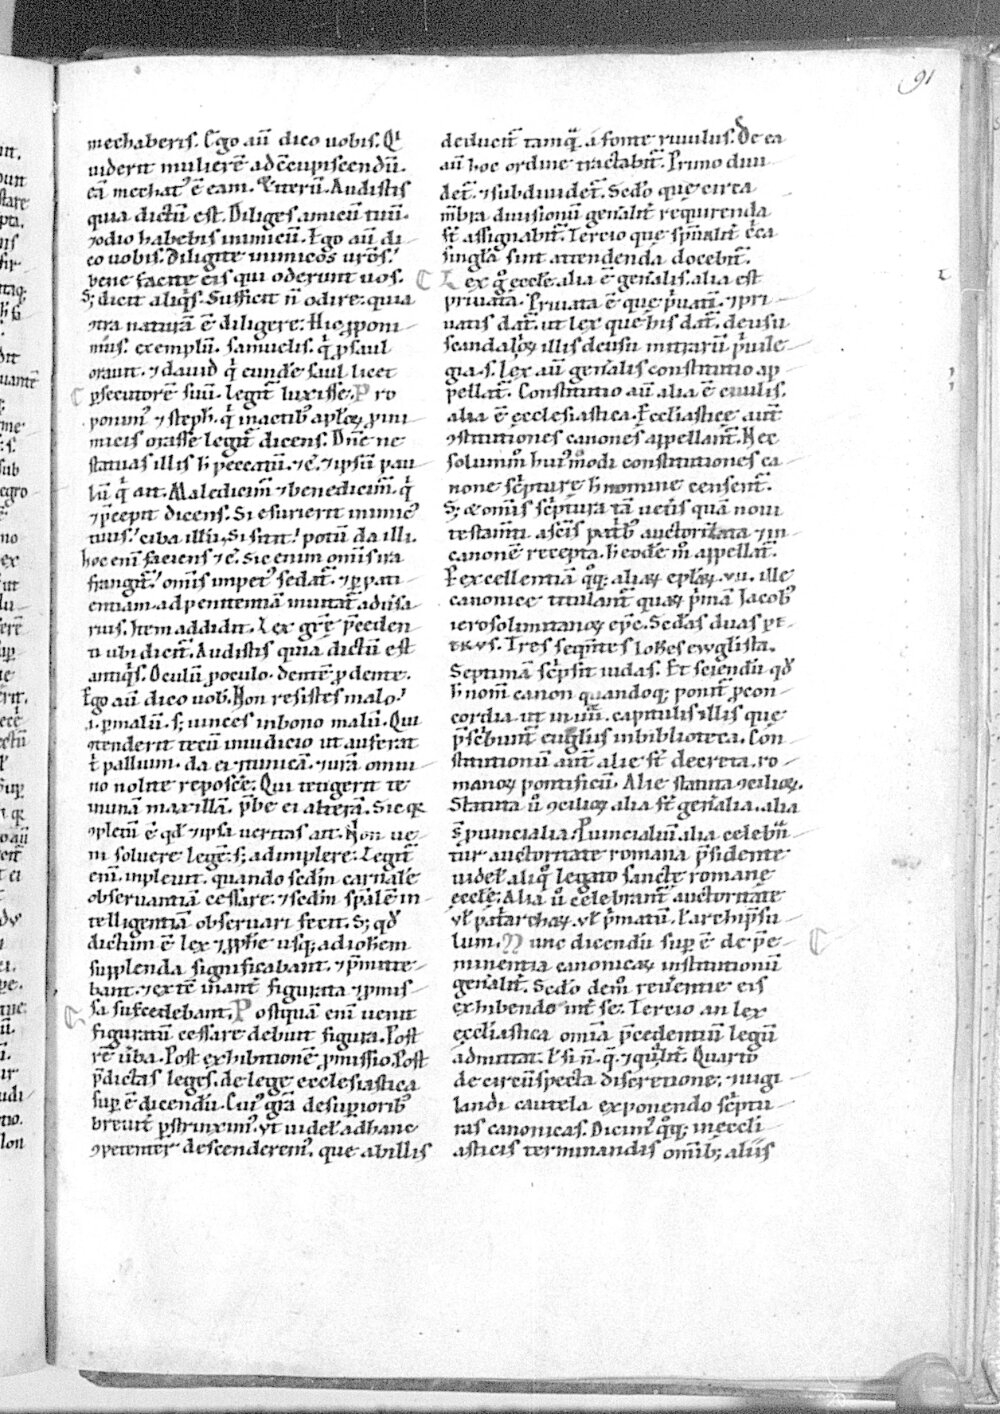 91
mechaberis. Ego aū dico uobis. Q͛
uiderit mulierē ad cc̄upiscendū.
eā mechat᷒ ē eam. Et iterū. Audistis
quia dictū est. Diliges amicū tuū.
⁊ odio habebis inimicū. Ego aū di
co uobis. Diligite inimicos urōs.
bene facite eis qui oderunt uos.
S; dicit aliq̇s. Sufficit n̄ odire. quia
ꝯtra naturā ē diligere. Hic ꝓponi
mus. exemplū. samuelis. q̇ ꝓ saul
orauit. ⁊ dauid q̇ eunde saul licet
ꝑsecutorē suū. legit᷒ luxisse. Pro
ponim᷒ ⁊ steph. q̇ in actib᷒ aploꝝ ꝓ ini
micis orasse legit᷒ dicens. Dn̄e ne
statuas illis h̄ peccatū. ⁊ ē. ⁊ ipsū pau
lū q̇ ait. Maledicim᷒ ⁊ benedicim᷒. q̇
⁊ p̄cepit dicens. Si esurierit inimic᷒
tuus. ciba illū, si sitit. potū da illi.
hoc eni faciens ⁊ c̄. Sic enim om̄is ira
frangit᷒. om̄is impet᷒ sedat᷒. ⁊ ꝑ pati
entiam ad penitentiā mutat᷒ aduersa
rius. Item addidit. Lex gr̄e p̄ceden
ti ubi dicit᷒. Audistis quia dictū est
antiq̇s. Oculū ꝓ oculo. dentē ꝓ dente.
Ego aū dico uob. Non resistes malo.
.i. ꝑ malū. s; uinces in bono malū. Qui
ꝯtenderit tecū in iudicio ut auferat
t̄ pallium. da ei ⁊ tunicā. ⁊ iurā omni
no nolite reposcē. Qui tetigerit te
in unā maxillā. p̄be ei alterā. Sicq;
ꝯpletū ē qd̄ ⁊ ipsa ueritas ait. Non ue
ni soluere legē. s; adimplere. Legē
eni. inpleuit. quando sedm̄ carnalē
obseruantiā cessare. ⁊ sedm̄ spālē in
telligentiā obseruari fecit. S; qd̄
dictum ē lex ⁊ ꝓph̄e usq; ad ioħem
supplenda significabant. ⁊ p̄mitte
bant. ⁊ ex tē inant figurata ⁊ ꝓmis
sa succedebant. Postquā eni uenit
figuratū cessare debuit figura. Post
rē ūba. Post exhibitionē ꝓmissio. Post
p̄dictas leges. de lege ecclesiastica
sup ē dicendū. Cui᷒ grā de superiorib᷒
breuit᷒ ꝑstrinxim᷒. ut uidel᷒ ad hanc
ꝯpetenter descenderem᷒. que ab illis
deducit᷒ tamq̄ a fonte riuulus. De ea
aū hoc ordine tractabit᷒. Primo diui
det᷒. ⁊ subdiuidet᷒. Sedo que circa
m̄bra diuisionū gen̄alit᷒ requirenda
st̄ assignabit᷒. Tercio que sp̄ualit᷒ c̄ca
singla sunt attendenda docebit᷒.
Lex ḡ eccl̄e. alia ē gen̄alis. alia est
priuata. Priuata ē que p̄uati. ⁊ pri
uatis dat᷒. ut lex que his dat᷒. de usu
scandaloꝝ illis de usu mitrarū p̄uile
gia .s. Lex aū gen̄alis constitutio ap
pellat᷒. Constitutio aū alia ē ciuilis.
alia ē ecclesiastica. Eccl̄iastice aut̄
ꝯstitutiones canones appellant᷒. Nec
solummō hui᷒modi constitutiones ca
none sc̄pture h̄ nomine censent᷒.
S; ⁊ om̄is sc̄ptura tā uetis quā noui
testam̄ti a sc̄is patib᷒ auctorizata ⁊ in
canonē recepta. h̄ eodē m̄ appellat᷒.
P excellentiā qq; aliaꝝ ep̄laꝝ .vii. ille
canonice titulant᷒ quaꝝ p̄mā Jacob᷒
ierosolimitanoꝝ ep̄c. Sedas duas pe
trus. Tres seqn̄tes ioħes ewglista.
Septimā sc̄psit iudas. Et sciendū qd̄
h̄ nom̄ canon quandoq; ponit᷒ ꝓ con
cordia. ut in .iiii. capitulis illis que
p̄scbunt᷒ euglijs in biblioteca. Con
stitutionū aūt alie st̄ decreta. ro
manoꝝ pontificū. Alie statuta ꝯcilioꝝ.
Statuta ū ꝯcilioꝝ alia st̄ gen̄alia. alia
s̄ ꝓuincialia. Puincialiū alia celebn̄
tur auctoritate romana p̄sidente
uidel᷒ aliq̊ legato sancte romane
eccl̄e. Alia ū celebrant᷒ auctoritate
ul̄ patarchaꝝ. ul̄ p̄matū. l̄ archip̄su
lum. Nunc dicendū sup ē de p̄e
minentia canonicaꝝ institutionū
gen̄alit᷒. Sedo dem̄ reuerntie eis
exhibende int̄ se. Tercio an lex
eccl̄iastica omīa p̄cedentium legū
admittat. l̄ si n̄ q̄ ⁊ qualit᷒. Quarto
de circūspecta discretione. ⁊ uigi
landi cautela exponendo sc̄ptu
ras canonicas. Dicim᷒ qq; in eccl̄i
asticis terminandis om̄ib; aliis